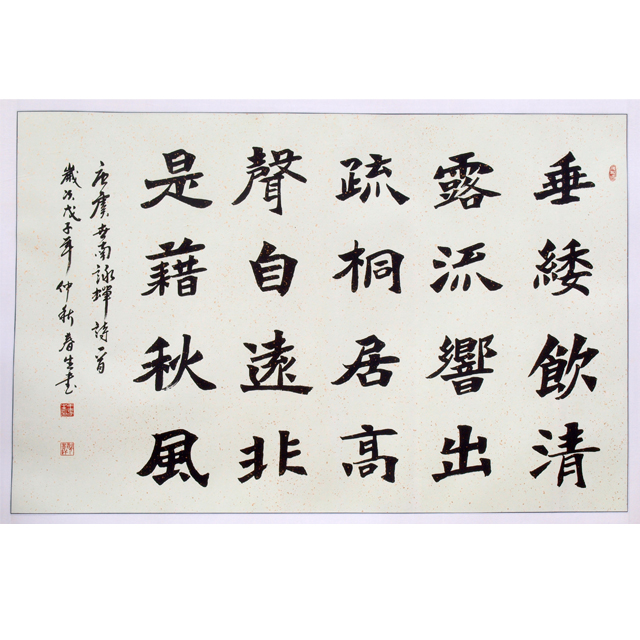 垂緌飲清
露流響出
疏桐居高
聲自遠非
是藉秋風
唐虞世南詠蟬詩一首
歲次戊子年仲秋春生書